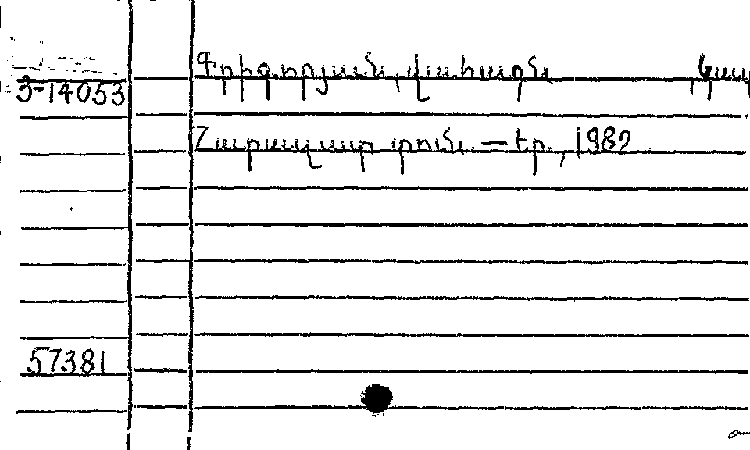 Գրիգորյան, Վահագն
3-14053
Հարազատ տուն. — Եր., 1982
57381